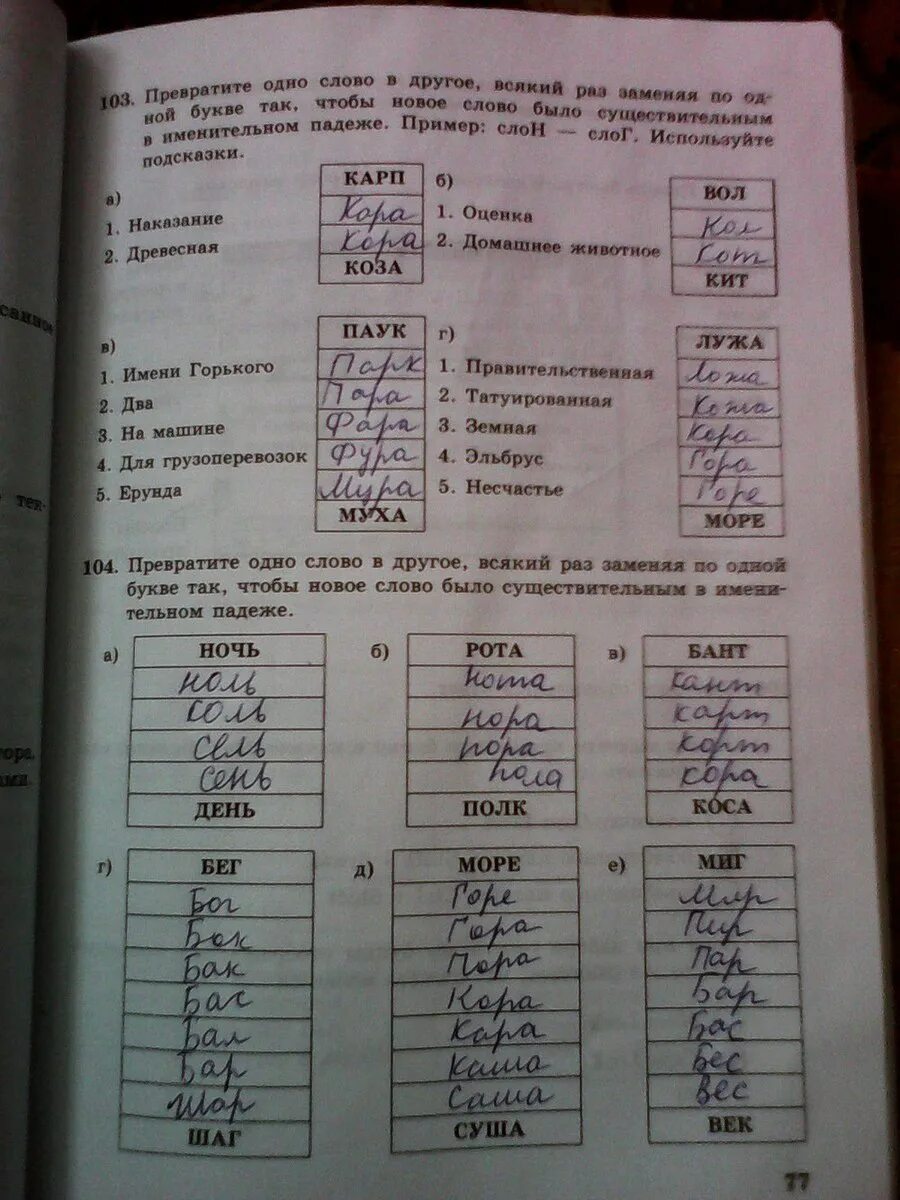 103. Превратите одно слово в другое, всякий раз заменяя по од-
ной букве так, чтобы новое слово было существительным
в именительном падеже. Пример: слоН — слоГ. Используйте
подсказки.
а)
КАРП
1. Наказание
Кора
2. Древесная
Кора
КОЗА
б)
ВОЛ
1. Оценка
Кол
2. Домашнее животное
Кот
КИТ
в)
ПАУК
1. Имени Горького
Парк
2. Два
Пара
3. На машине
Фара
4. Для грузоперевозок
Фура
5. Ерунда
Мура
МУХА
г)
ЛУЖА
1. Правительственная
Ложа
2. Татуированная
Кожа
3. Земная
Кора
4. Эльбрус
Гора
5. Несчастье
Горе
МОРЕ
104. Превратите одно слово в другое, всякий раз заменяя по одной
букве так, чтобы новое слово было существительным в имени-
тельном падеже.
а)
НОЧЬ
ноль
соль
сель
сень
ДЕНЬ
б)
РОТА
нота
нора
пора
пола
ПОЛК
в)
БАНТ
кант
карт
корт
кора
КОСА
г)
БЕГ
Бог
Бок
Бак
Бас
Бал
Бар
Шар
ШАГ
д)
МОРЕ
Горе
Гора
Пора
Кора
Кара
Каша
Саша
СУША
е)
МИГ
Мир
Пир
Пар
Бар
Бас
Бес
Вес
ВЕК
77